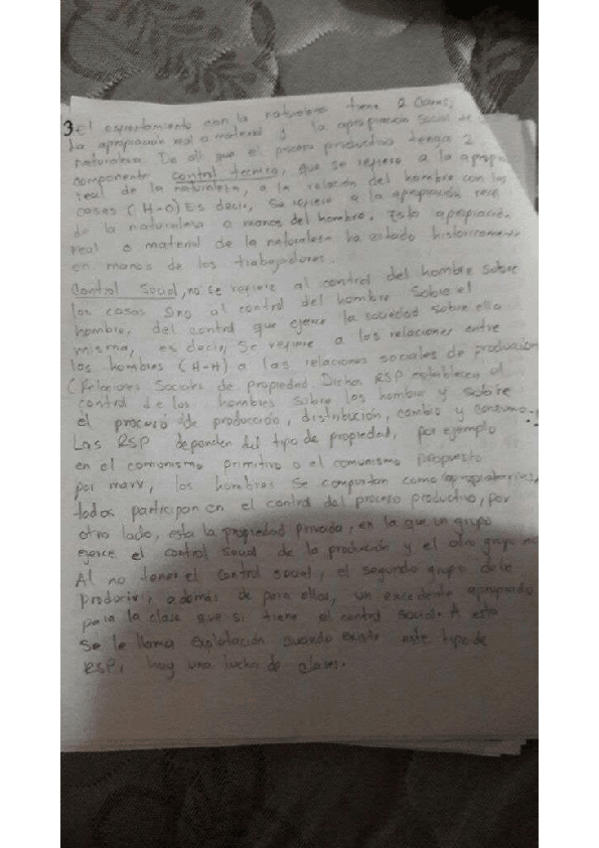 3. El comportamiento con la naturaleza tiene 2 claves,
la apropiación real o material y la apropiación social de
naturaleza. De alli que el proceso productivo tenga 2
componente control tecnico, que se refiere a la apropi
real de la naturaleza, a la relación del hombre con las
cosas (H-O) Es decir, se refiere a la apropiación real
de la naturaleza a manos del hombre. Esta apropiación
real o material de la naturaleza ha estado historicamente
en manos de los trabajadores.
Control Social, no se refiere al control del hombre sobre
las cosas sino al control del hombre sobre el
hombre, del control que ejerce la sociedad sobre ella
misma, es decir, se refiere a las relaciones entre
los hombres (H-H) a las relaciones sociales de producción
(Relaciones Sociales de propiedad. Dichas RSP establecen el
control de los hombres sobre los hombre y sobre
el proceso de producción, distribución, cambio y consumo.
Las RSP dependen del tipo de propiedad, por ejemplo
en el comunismo primitivo o el comunismo propuesto
por marx, los hombres se comportan como copropietarios,
todos participan en el control del proceso productivo, por
otro lado, esta la propiedad privada, en la que un grupo
ejerce el control social de la producción y el otro grupo no
Al no tener el control social, el segundo grupo debe
producir, además de para ellos, un excedente apropiado
para la clase que si tiene el control social. A esto
se le llama explotación cuando existe este tipo de
RSP, hay una lucha de clases.